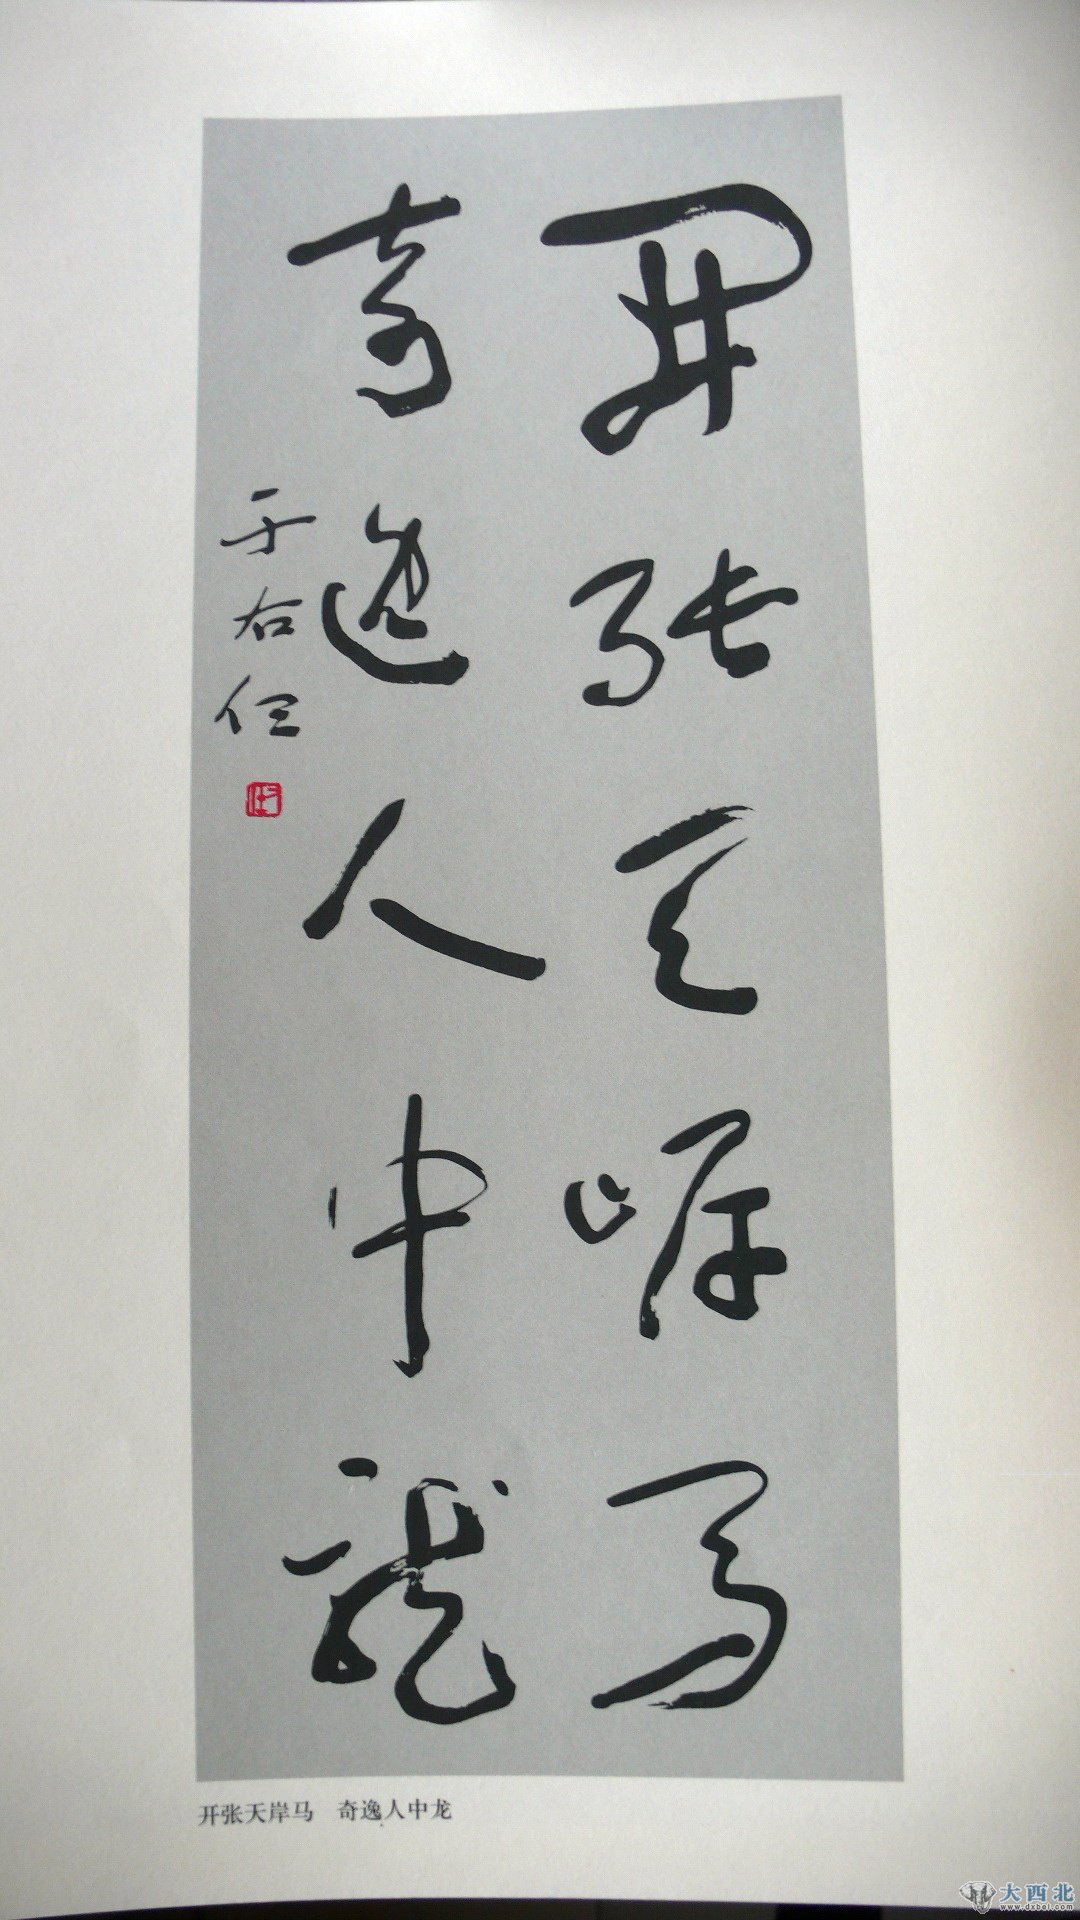 開張天岸馬
奇逸人中龍
于右任
开张天岸马 奇逸人中龙
大西北
www.dxbei.com